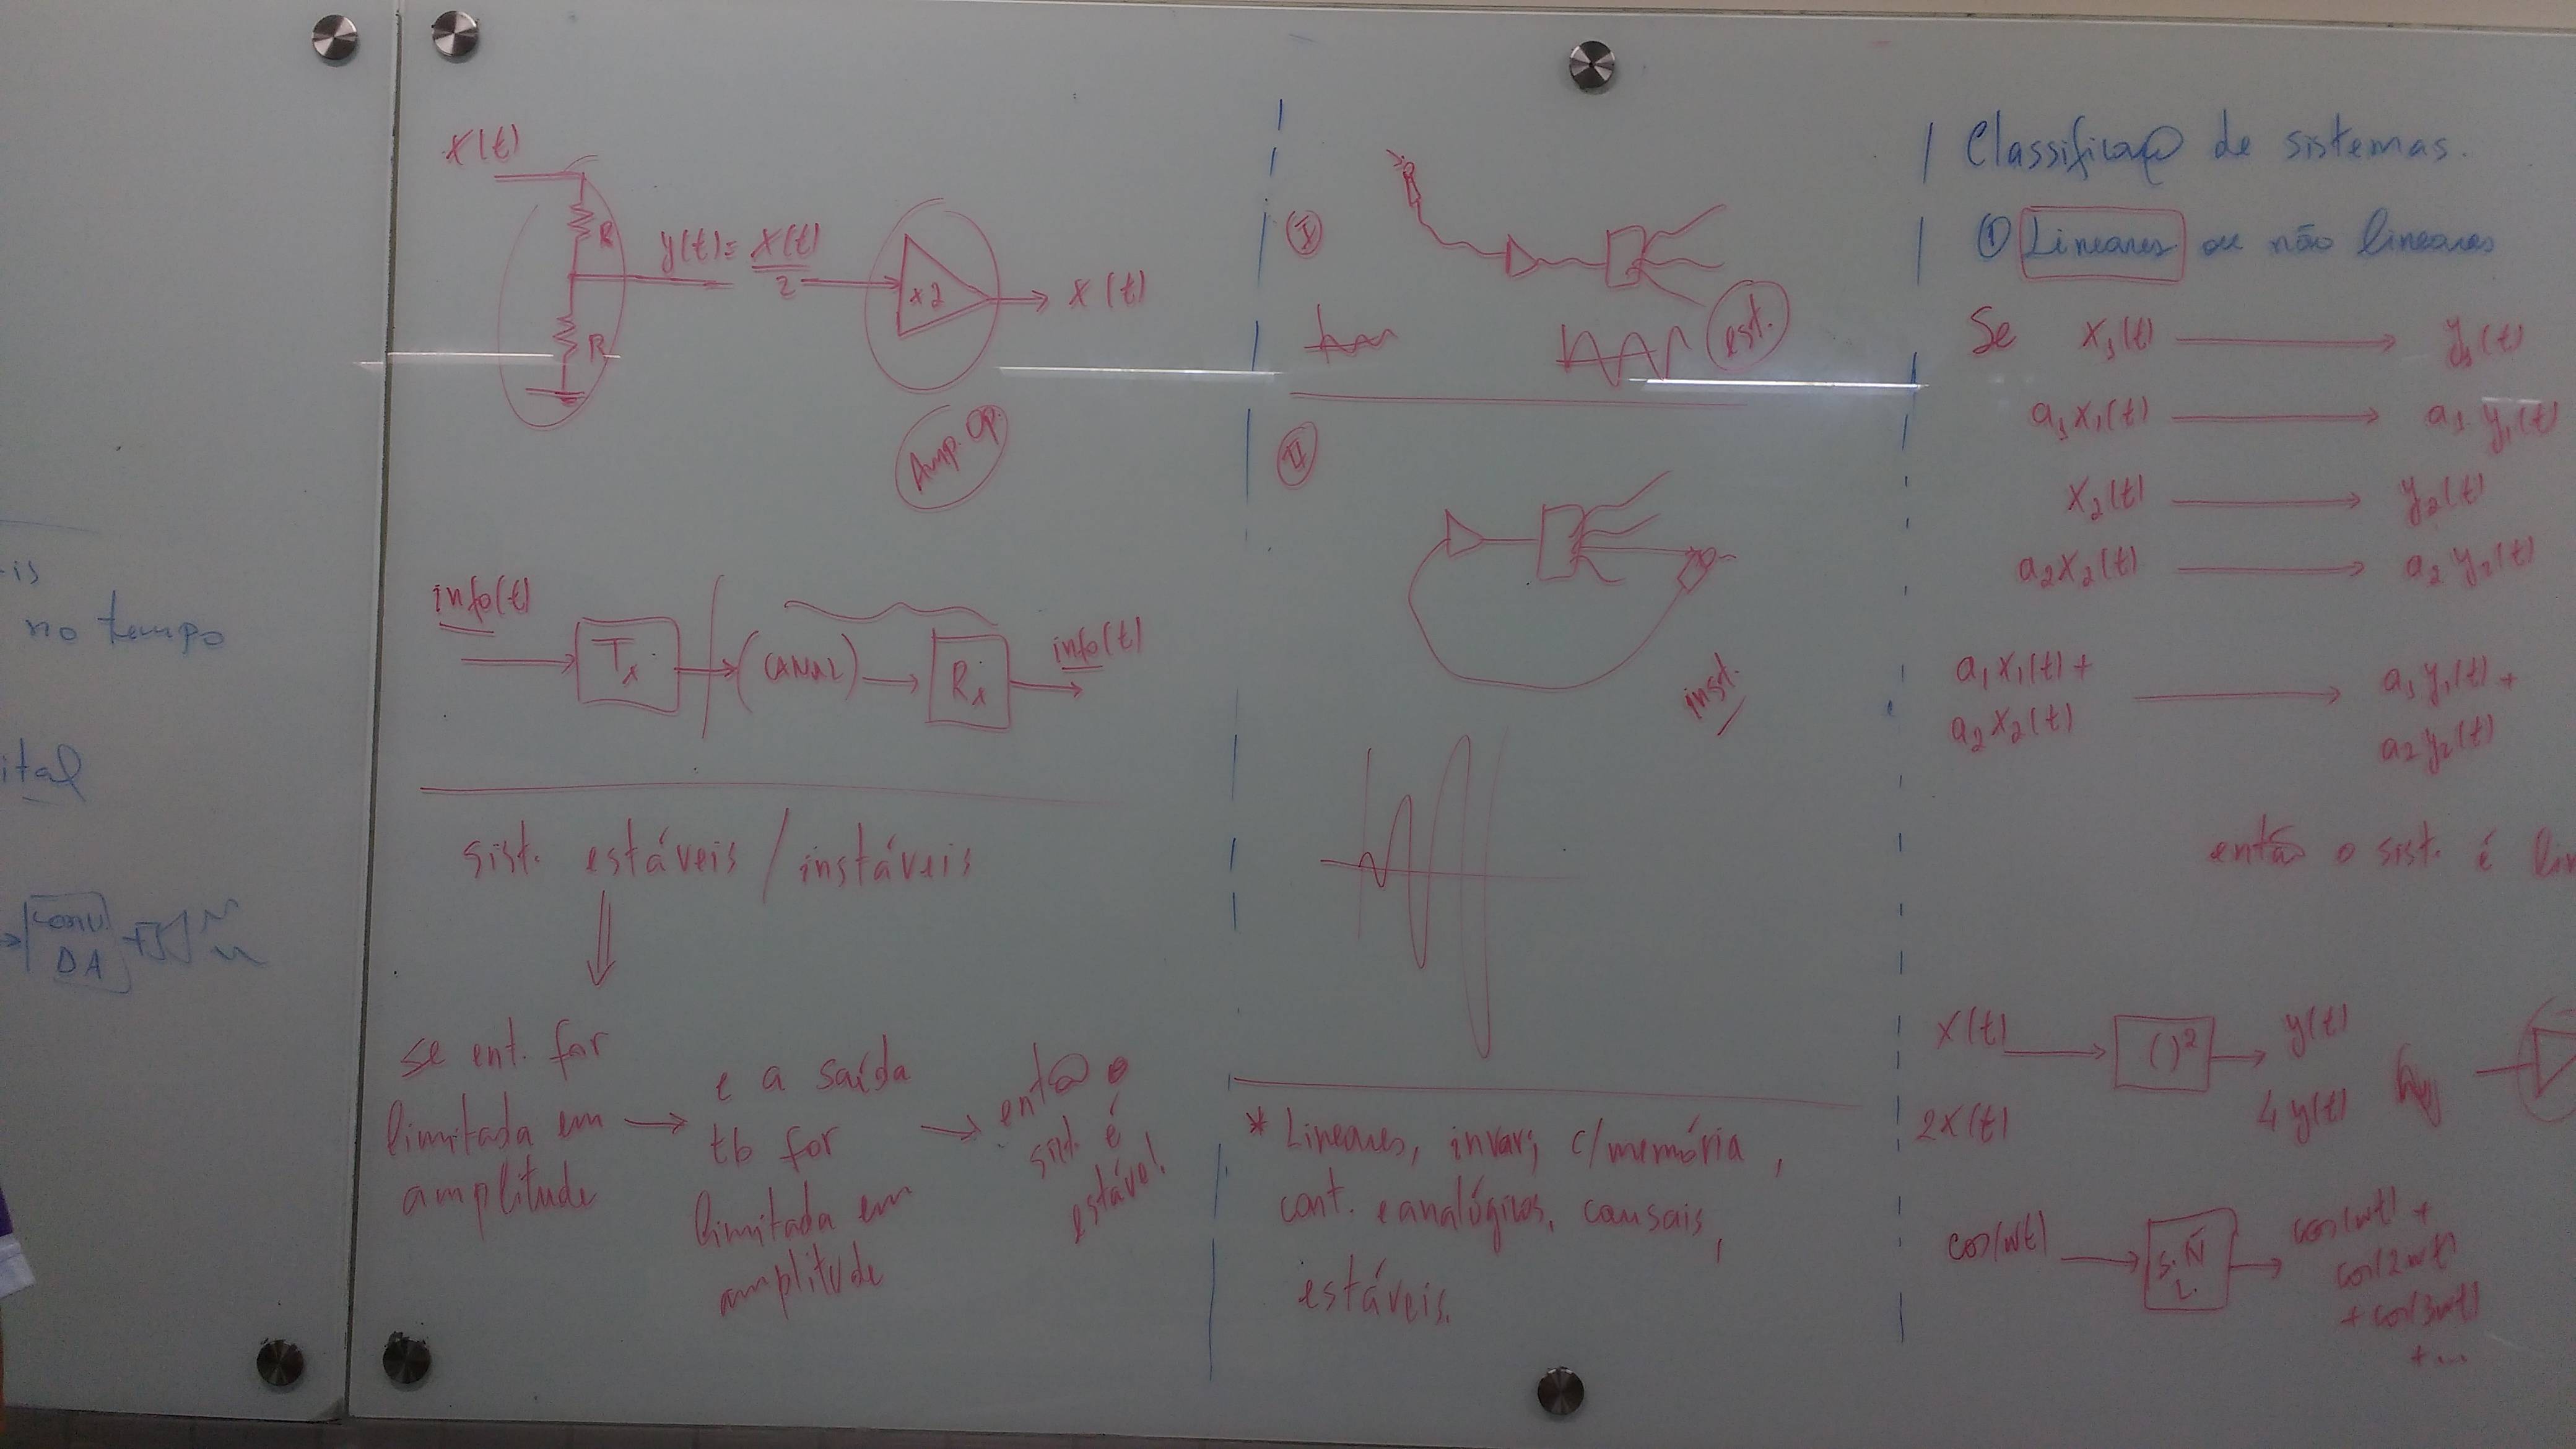 is
no tempo
ital
Conv
DA
x(t)
R
y(t) = x(t)/2
x2
x(t)
R
Amp. Op.
info(t)
Tx
(CANAL)
Rx
info(t)
sist. estáveis / instáveis
se ent. for
limitada em
amplitude
e a saída
tb for
limitada em
amplitude
então o
sist. é
estável.
I
est.
II
inst.
* Lineares, invar, c/memória,
cont. e analógicos, causais,
estáveis.
Classificação de sistemas.
① Lineares ou não lineares
Se x1(t) → y1(t)
a1x1(t) → a1 y1(t)
x2(t) → y2(t)
a2x2(t) → a2 y2(t)
a1x1(t) + → a1y1(t) +
a2x2(t) a2y2(t)
então o sist. é lin
x(t) → ( )² → y(t)
2x(t) 4y(t)
cos(wt) → S.Ñ L. → cos(wt) +
cos(2wt)
+ cos(3wt)
+ ...